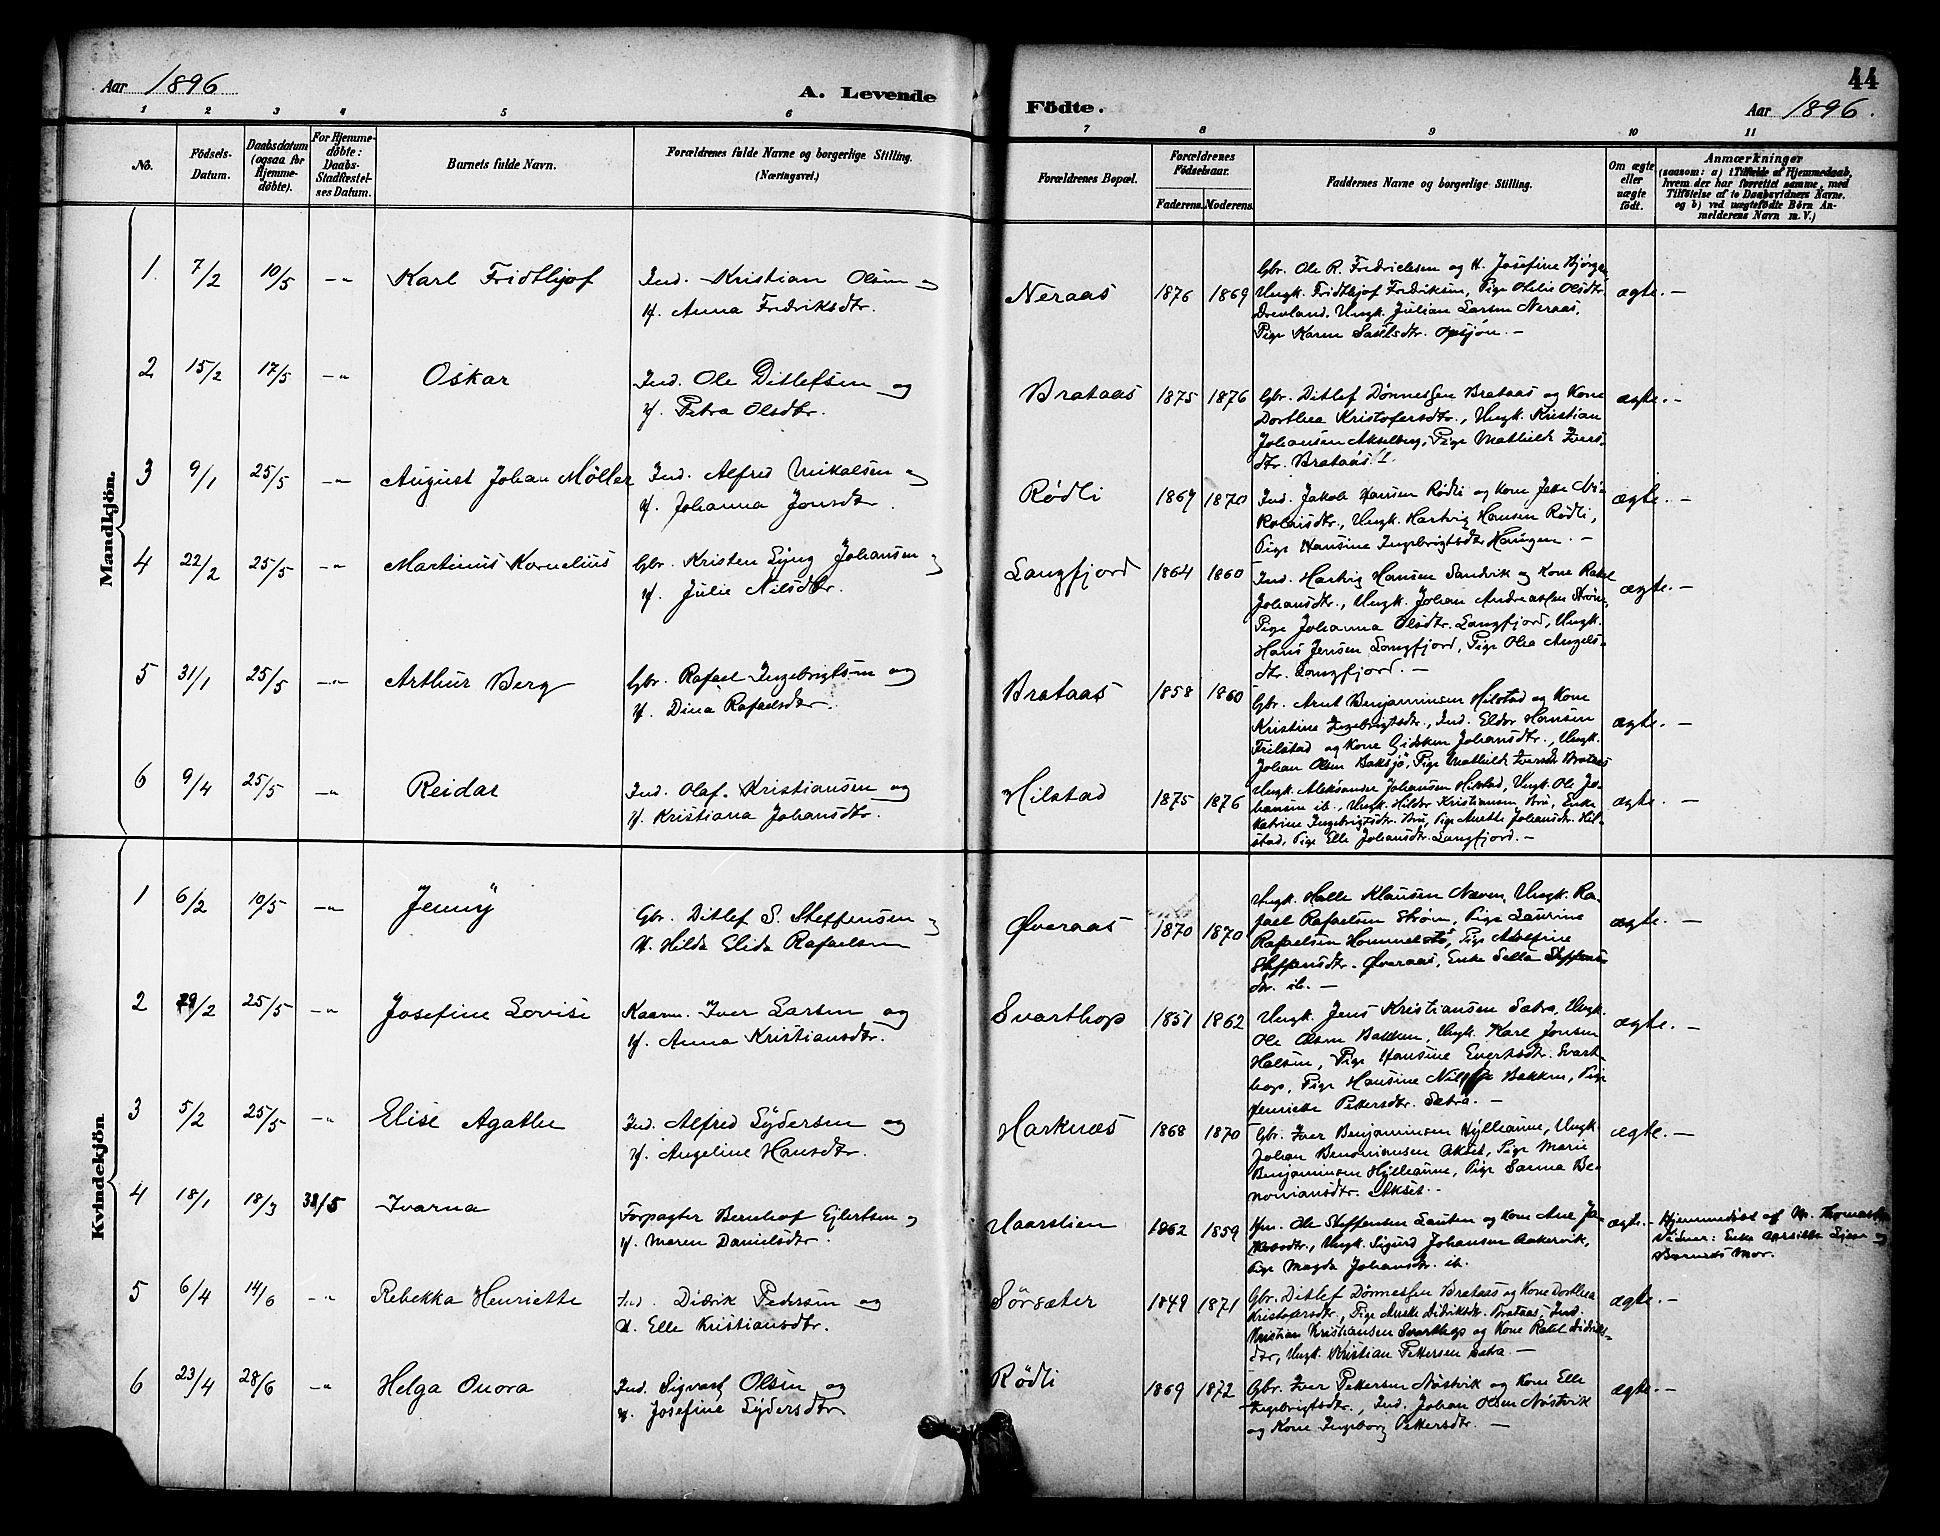 Aar 1896
A. Levende
Födte.
44
Aar 1896.
1 2 3 4 5 6 7 8 9 10 11
No.
Födsels-Datum.
Daabsdatum (ogsaa for Hjemme-døbte).
For Hjemme-døbte: Daabs-Stadfæstel-ses Datum.
Barnets fulde Navn.
Forældrenes fulde Navne og borgerlige Stilling.
(Næringsvei.)
Forældrenes Bopæl.
Forældrenes Födselsaar.
Faderens. Moderens.
Faddernes Navne og borgerlige Stilling.
Om ægte eller uægte födt.
Anmærkninger
(saasom: a) i Tilfælde af Hjemmedaab, hvem der har forrettet samme, med Tilføielse af to Daabsvidners Navne. og b) ved uægtefödte Börn An-melderens Navn m. V.)
Mandkjön.
1. 7/2 10/5 -"- Karl Fridthjof
Ind. Kristian Olsen og
H. Anna Fredriksdtr.
Neraas 1876 1869
Gbr. Ole R. Fredriksen og H. Josefine
Ungk. Fridthjof Fredriksen, Pige Otilie Olsdtr
Drevland, Ungk. Julian Larsen Neraas,
Pige Karen
ægte. —
2 15/2 17/5 -"- Oskar
Ind. Ole Ditlefsen og
H. Petra Olsdtr.
Brataas 1875 1876
Gbr. Ditlef Dønnesen Brataas og Kone
Dorthea Kristofersdtr., Ungk. Kristian
Johansen Akselberg, Pige Mathilde Ivers-
dtr. Brataas.
ægte. —
3 9/1 25/5 -"- August Johan Møller
Ind. Alfred Mikalsen og
H. Johanna Jonsdtr.
Rødli 1867 1870
Ind. Jakob Hansen Rødli og Kone Jette Ni-
kolaisdtr., Ungk. Hartvig Hansen Rødli,
Pige Hansine Ingebrigtsdtr. —
ægte. —
4 22/2 25/5 -"- Martinus Kornelius
Gbr. Kristen Lyng Johansen og
H. Julie Nilsdtr.
Langfjord 1864 1860
Ind. Hartvig Hansen Sandvik og Kone Rakel
Johansdtr., Ungk. Johan Andreassen Strøm,
Pige Johanna Olsdtr. Langfjord, Ungk.
Hans Jensen Langfjord, Pige Olea Angels-
dtr. Langfjord. —
ægte. —
5 31/1 25/5 -"- Arthur Berg
Gbr. Rafael Ingebrigtsen og
H. Dina Rafaelsdtr.
Brataas 1858 1860
Gbr. Arnt Benjaminsen Hilstad og Kone
Kristine Ingebrigtsdtr., Ind. Eldor Hansen
og Kone Gidsken Johansdtr., Ungk.
Johan Olsen Baksjø, Pige Mathilde Iversdtr Brataas
ægte. —
6 9/4 25/5 -"- Reidar
Ind. Olaf Kristiansen og
H. Kristiana Johansdtr.
Hilstad 1875 1876
Ungk. Aleksander Johansen Hilstad, Ungk. Ole Jo-
hansen ib., Ungk. Hildor Kristiansen Bru, Enke
Katrine Ingebrigtsdtr. Bru, Pige Anette Johansdtr. Hil-
stad, Pige Elle Johansdtr. Langfjord. —
ægte. —
Kvindekjön
1 6/2 10/5 -"- Jenny
Gbr. Ditlef S. Steffensen og
H. Hilda Elida Rafaelsen
Øveraas 1870 1870
Ungk. Halle Klausen Naven, Ungk. Ra-
fael Rafaelsen Strøm, Pige Laurine
Rafaelsen, Pige Adolfine
Steffensdtr. Øveraas, Enke Sella Steffens-
dtr. ib. —
ægte. —
2 29/2 25/5 -"- Josefine Lovise
Kaarm. Iver Larsen og
H. Anna Kristiansdtr.
Svarthop 1851 1862
Ungk. Jens Kristiansen Sætra, Ungk.
Ole Olsen Bakken, Ungk. Karl Jonsen
Halsen, Pige Hansine Evertsdtr. Svart-
hop, Pige Hansine Bakken, Pige
Henriette Pettersdtr. Sætra. —
ægte. —
3 5/2 25/5 -"- Elise Agathe
Ind. Alfred Sydersen og
H. Angeline Hansdtr.
Harknæs 1868 1870
Gbr. Iver Benjaminsen Hylleaune, Ungk.
Johan Benoniansen Akset, Pige Marie
Benjaminsen Hylleaune, Pige Sanna Be-
noniansdtr. Akset. —
ægte. —
4 18/1 18/3 /5 Ivarna
Forpagter Bernhof Ejlertsen og
H. Maren Danielsdtr.
Haarstien 1862 1859
Ole Steffensen Lauten og Kone Ane Ja-
kobsdtr., Ungk. Sigurd Johansen Aakervik,
Pige Magda Johansdtr. ib.
ægte. —
Hjemmedøbt af
Vidner: Enke og
Barnets Mor.
5 6/4 14/6 -"- Rebekka Henriette
Ind. Didrik Pedersen og
H. Elle Kristiansdtr.
Sørsæter 1849 1871
Gbr. Ditlef Dønnesen Brataas og Kone Dorthea
Kristofersdtr., Pige Anette Didriksdtr. Brataas, Ind.
Kristian Kristiansen Svarthop og Kone Rakel Didriks-
dtr., Ungk. Kristian Pettersen Sætra. —
ægte. —
6 23/4 28/6 -"- Helga Onora
Ind. Sigvart Olsen og
H. Josefine Sydersdtr
Rødli 1869 1872
Gbr. Iver Pettersen Nøstvik og Kone Elle
Ingebrigtsdtr., Ind. Johan Olsen Nøstvik
og Kone Ingeborg Pettersdtr. —
ægte. —